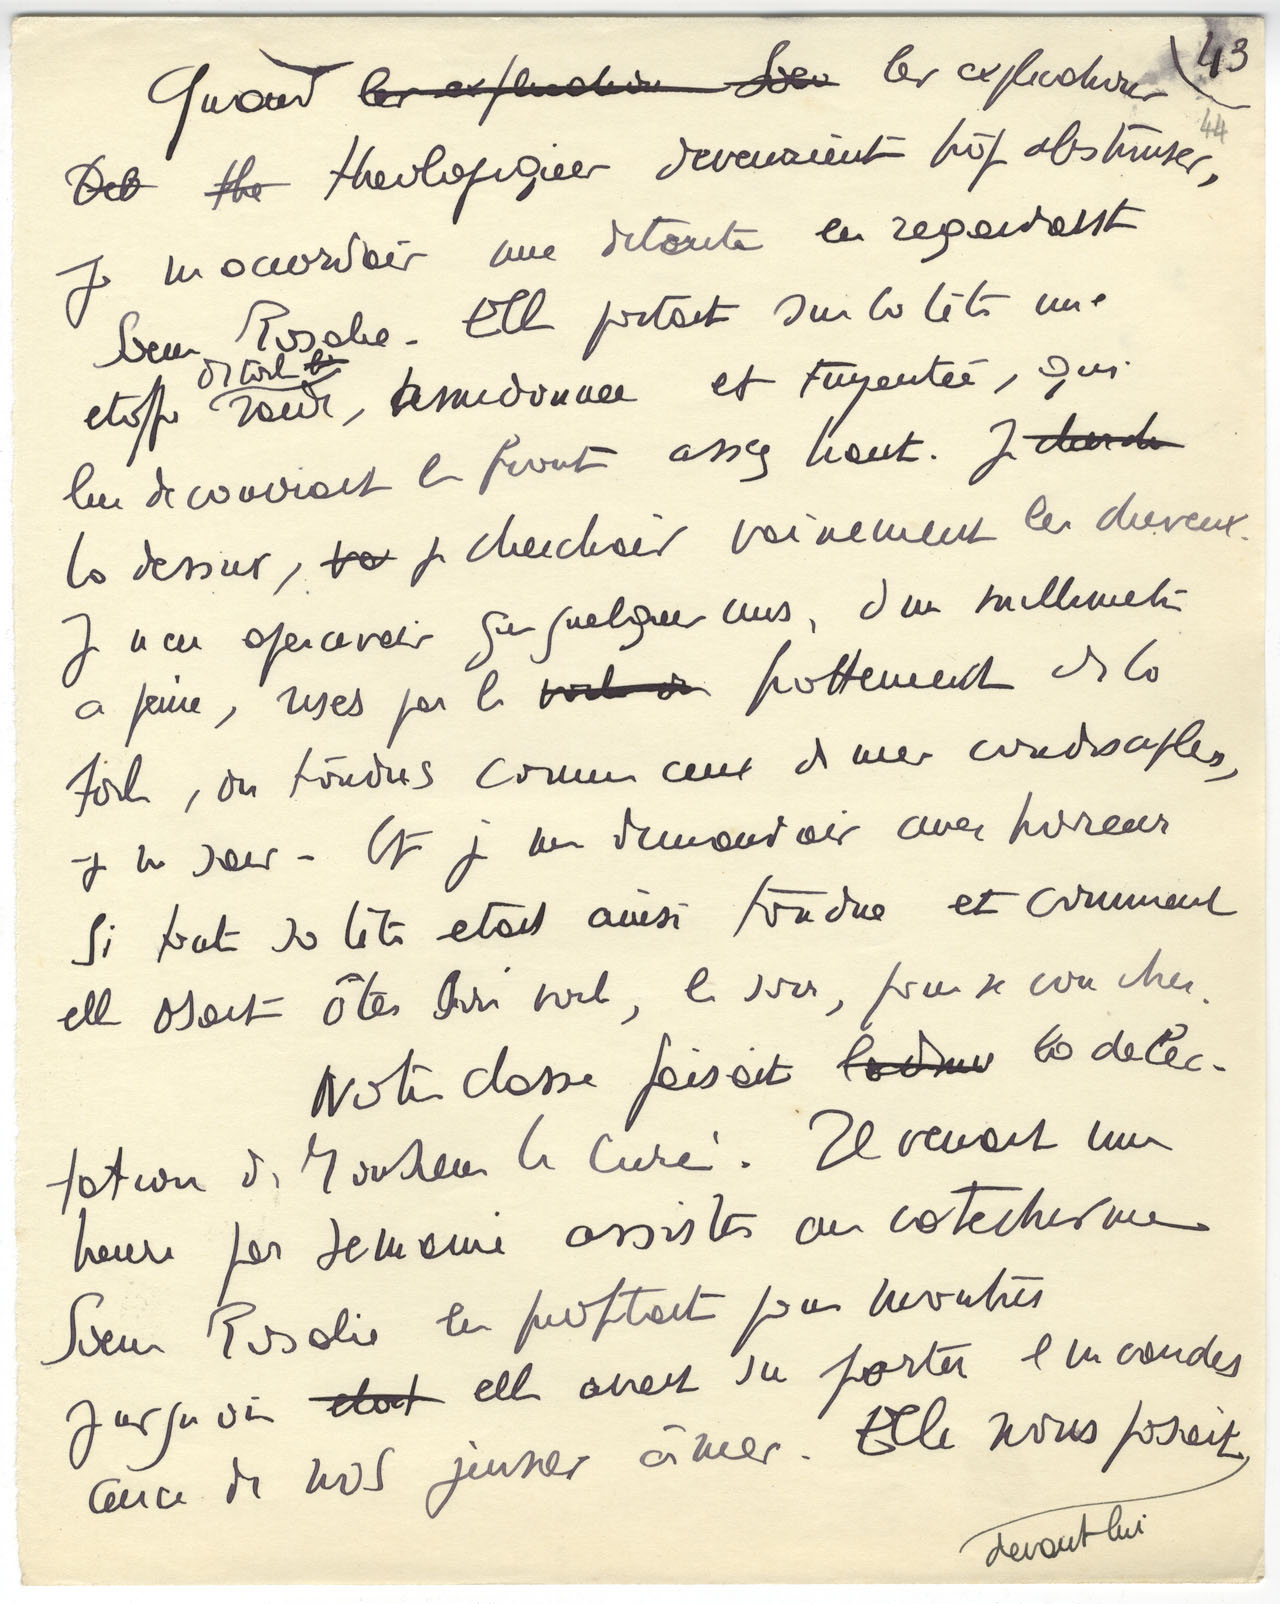 43
44
Quand les explications Dieu les explications
Deb the theologiques devenaient trop abstruses,
Je m accordais une detente en regardant
Soeur Rosalie. Elle portait sur la tête une
de toile
etoffe raide, amidonnee et tuyautée, qui
lui decouvrait le front assez haut. Je cherch
la dessus, va je cherchais vainement les cheveux.
Je n en apercevais que quelques uns, d un millimetre
a peine, uses par le voile de frottement de la
toile, ou tondus comme ceux de mes condisciples,
je ne sais. Et je me demandais avec horreur
Si toute sa tête etait ainsi tondue et comment
elle osait ôter son voile, le soir, pour se coucher.
Notre classe faisait la delec-
tation de Monsieur le Curé. Il venait une
heure par semaine assister au catechisme
Soeur Rosalie en profitait pour montrer
Jusqu où etait elle avait su porter l incandes
cence de nos jeunes âmes. Elle nous posait,
devant lui